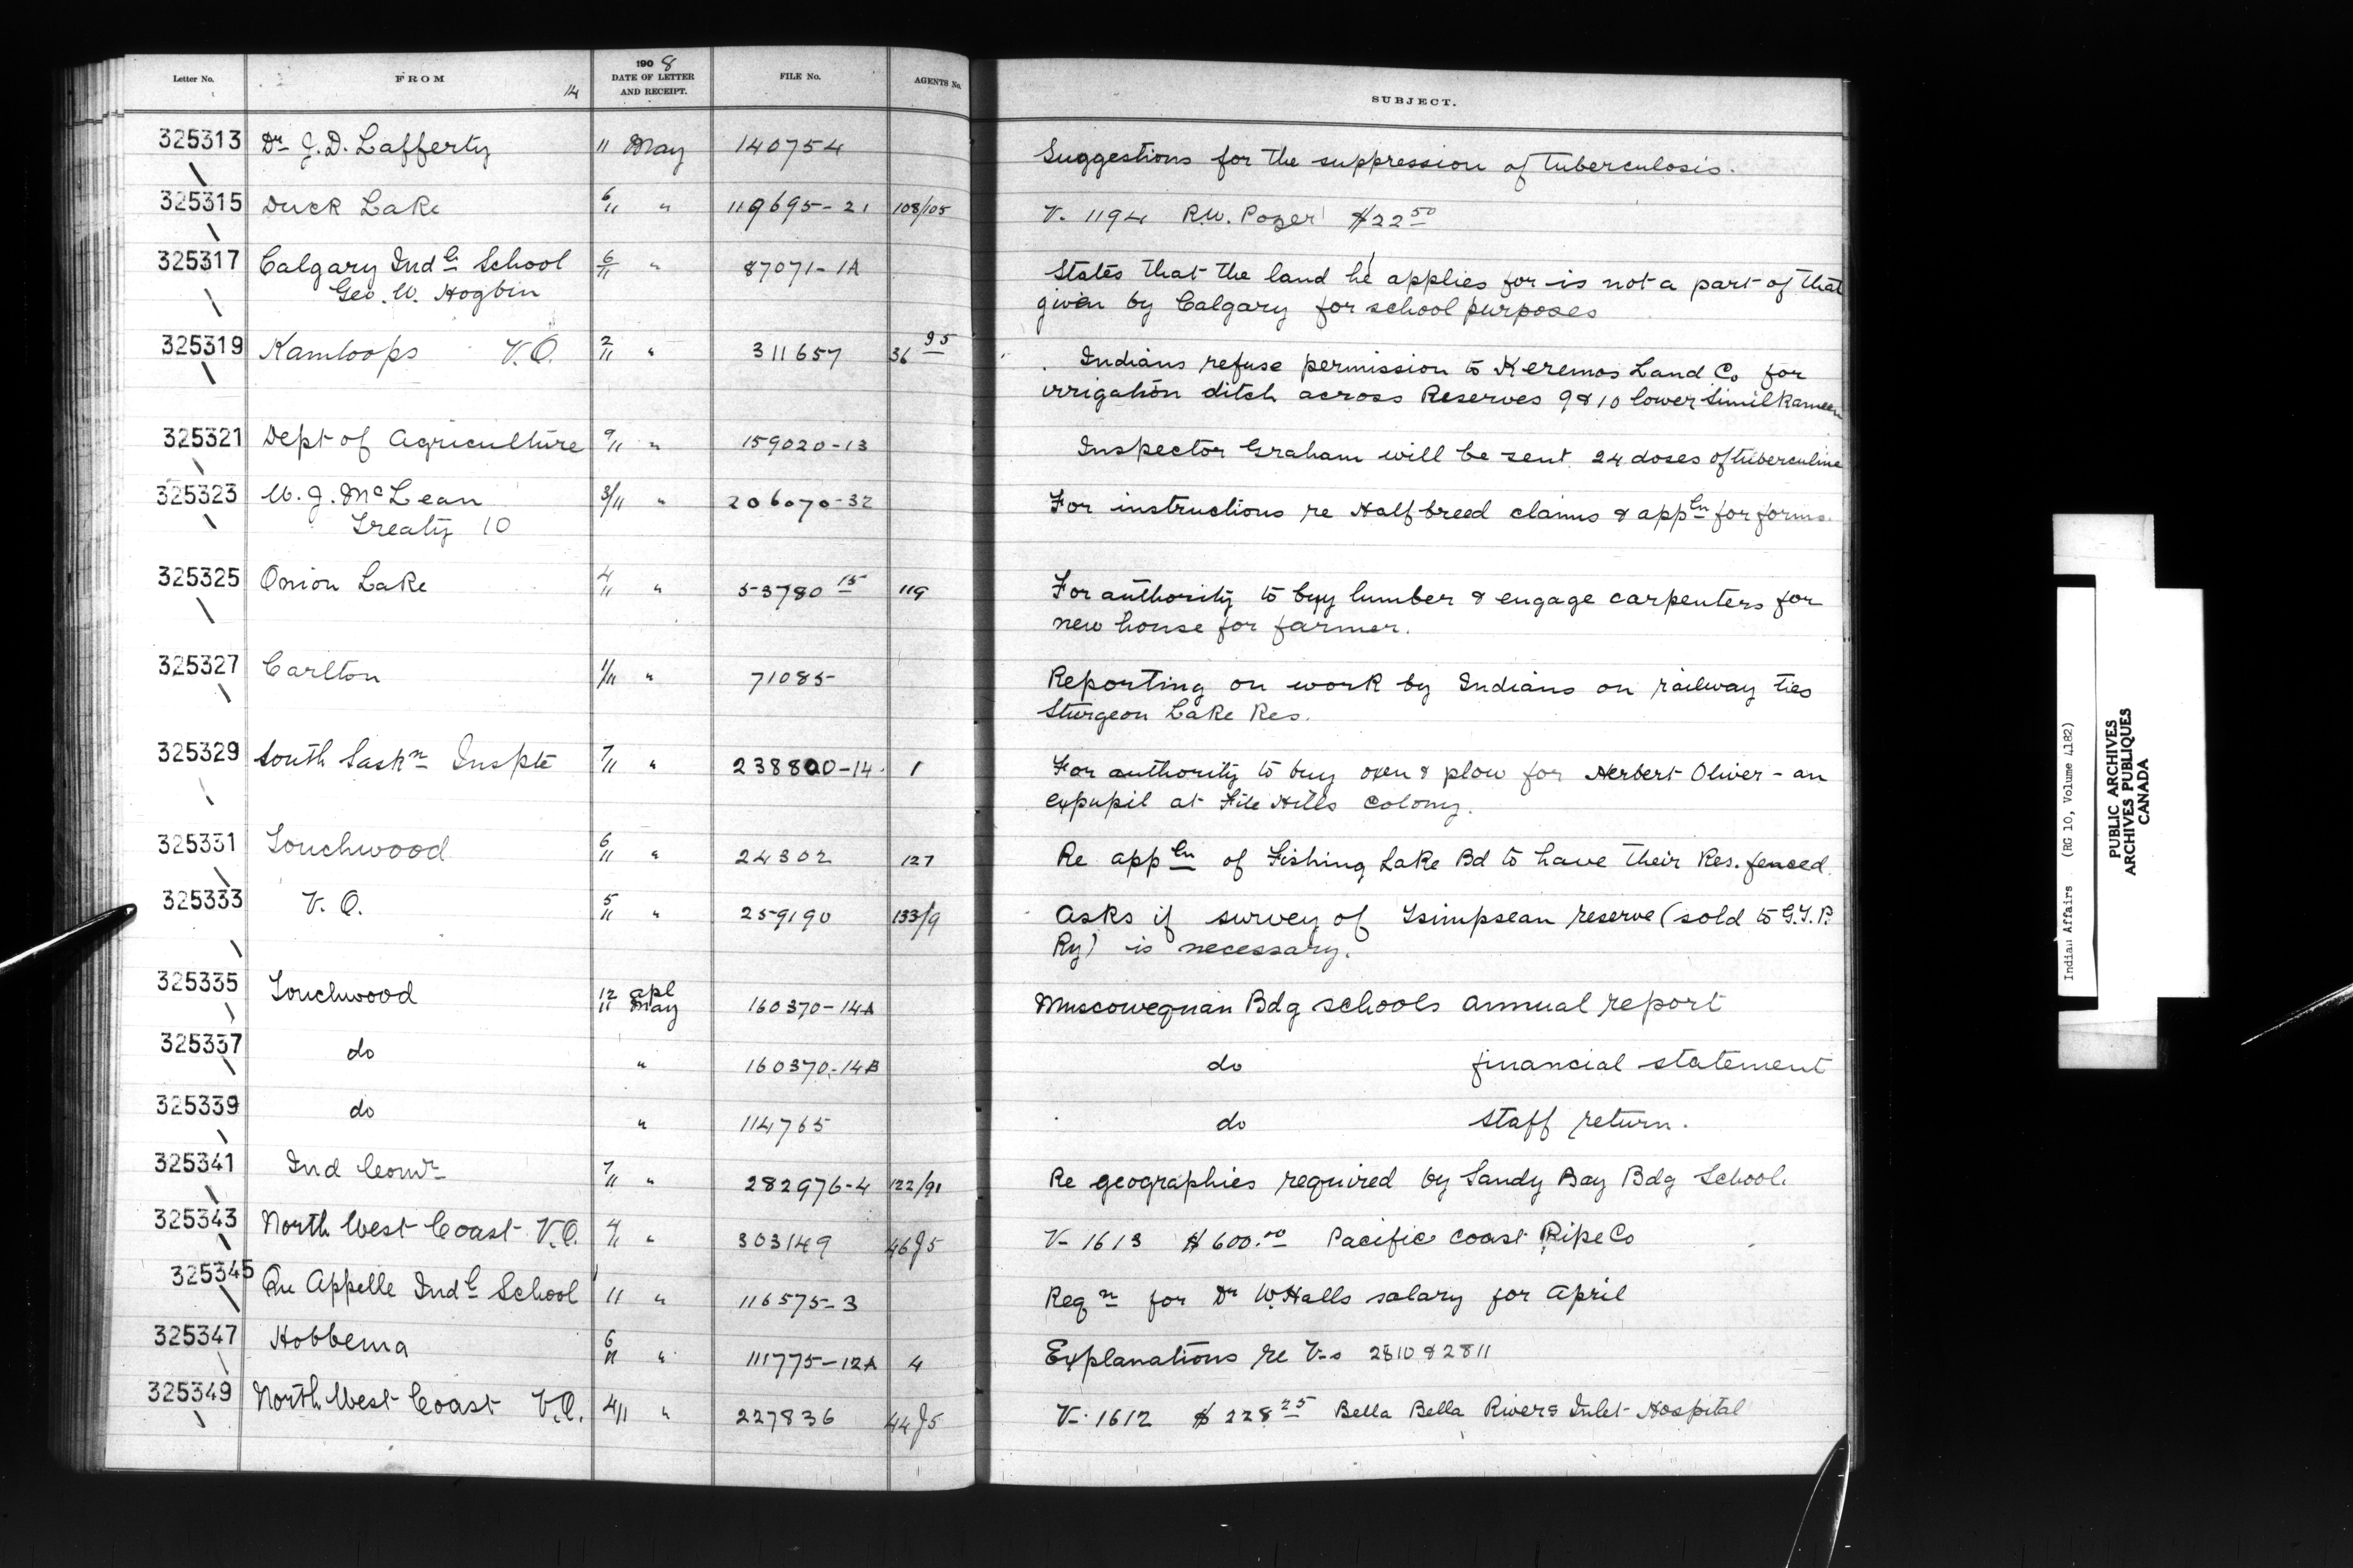 Letter No. FROM 14 1908 DATE OF LETTER AND RECEIPT. FILE No. AGENTS No. SUBJECT.
325313 Dr J.D. Lafferty 11 May 140754 Suggestions for the suppression of tuberculosis.
325315 Duck Lake 6/11 " 119695-21 108/105 V. 1194 R.W. Pozer $22 50
325317 Calgary Indl School 6/11 " 87071-1A States that the land he applies for is not a part of that
Geo. W. Hogbin given by Calgary for school purposes
325319 Kamloops V.O. 2/11 " 311657 36 95 Indians refuse permission to Keremos Land Co for
irrigation ditch across Reserves 9 & 10 lower Similkameen
325321 Dept of Agriculture 9/11 " 159020-13 Inspector Graham will be sent 24 doses of tuberculine
325323 W. J. McLean 3/11 " 206070-32 For instructions re Halfbreed claims & appln for forms.
Treaty 10
325325 Onion Lake 4/11 " 53780 15 119 For authority to buy lumber & engage carpenters for
new house for farmer.
325327 Carlton 1/11 " 71085 Reporting on work by Indians on railway ties
Sturgeon Lake Res.
325329 South Saskn Inspte 7/11 " 238800-14 1 For authority to buy oxen & plow for Herbert Oliver - an
expupil at File Hills Colony.
325331 Touchwood 6/11 " 24302 127 Re appln of Fishing Lake Bd to have their Res. fenced.
325333 V. O. 5/11 " 259190 133/9 Asks if survey of Tsimpsean reserve (sold to G.T.P.
Ry) is necessary.
325335 Touchwood 12 apl 11 May 160370-14A Muscowequan Bdg schools annual report
325337 do " 160370-14B do financial statement
325339 do " 114765 do staff return.
325341 Ind Comr 7/11 " 282976-4 122/91 Re geographies required by Sandy Bay Bdg School.
325343 North West Coast V.O. 4/11 " 303149 46J5 V- 1613 $600.00 Pacific Coast Pipe Co
325345 Qu Appelle Indl School 11 " 116575-3 Reqn for Dr W. Halls salary for April
325347 Hobbema 6/11 " 111775-12A 4 Explanations re V-s 2810 & 2811
325349 North West Coast V.O. 4/11 " 227836 44J5 V-1612 $228 25 Bella Bella Rivers Inlet Hospital
Indian Affairs (RG 10, Volume 4182)
PUBLIC ARCHIVES
ARCHIVES PUBLIQUES
CANADA